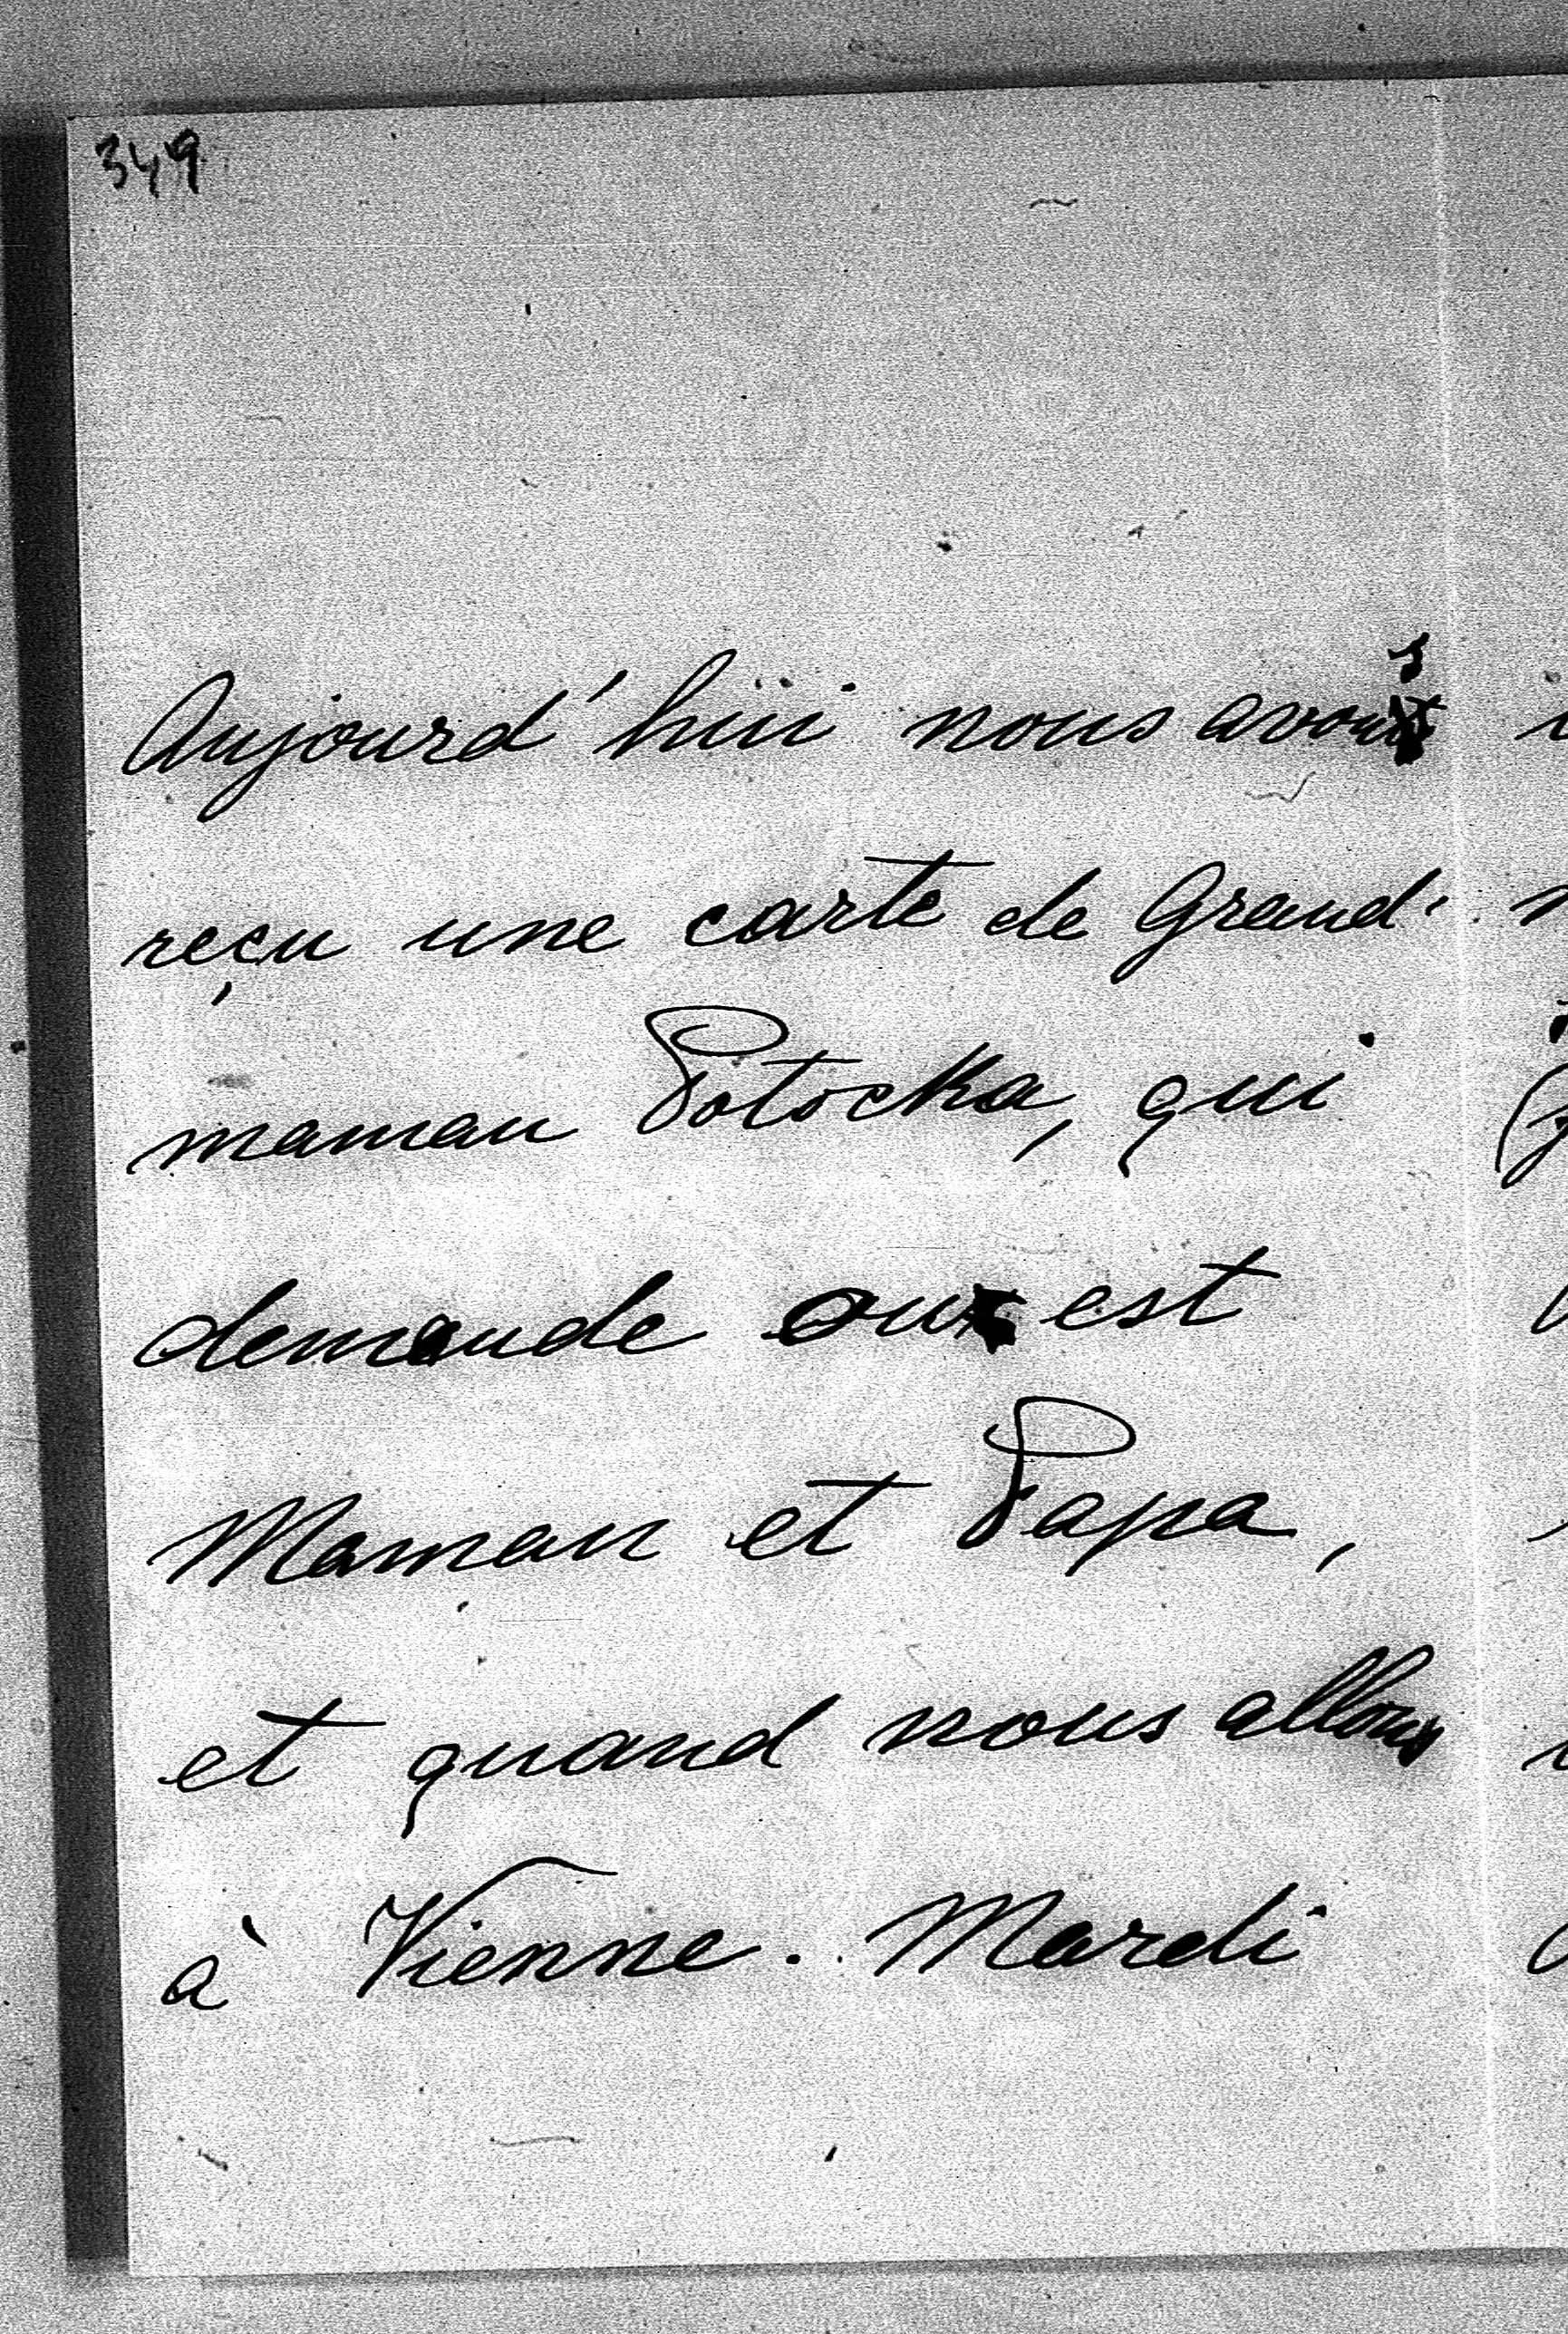 349
Aujourd'hüi nous avons
reçu une carte de Grand-
maman Potocka, qui
demande ou est
Maman et Papa,
et quand nous allons
à Vienne. Mardi